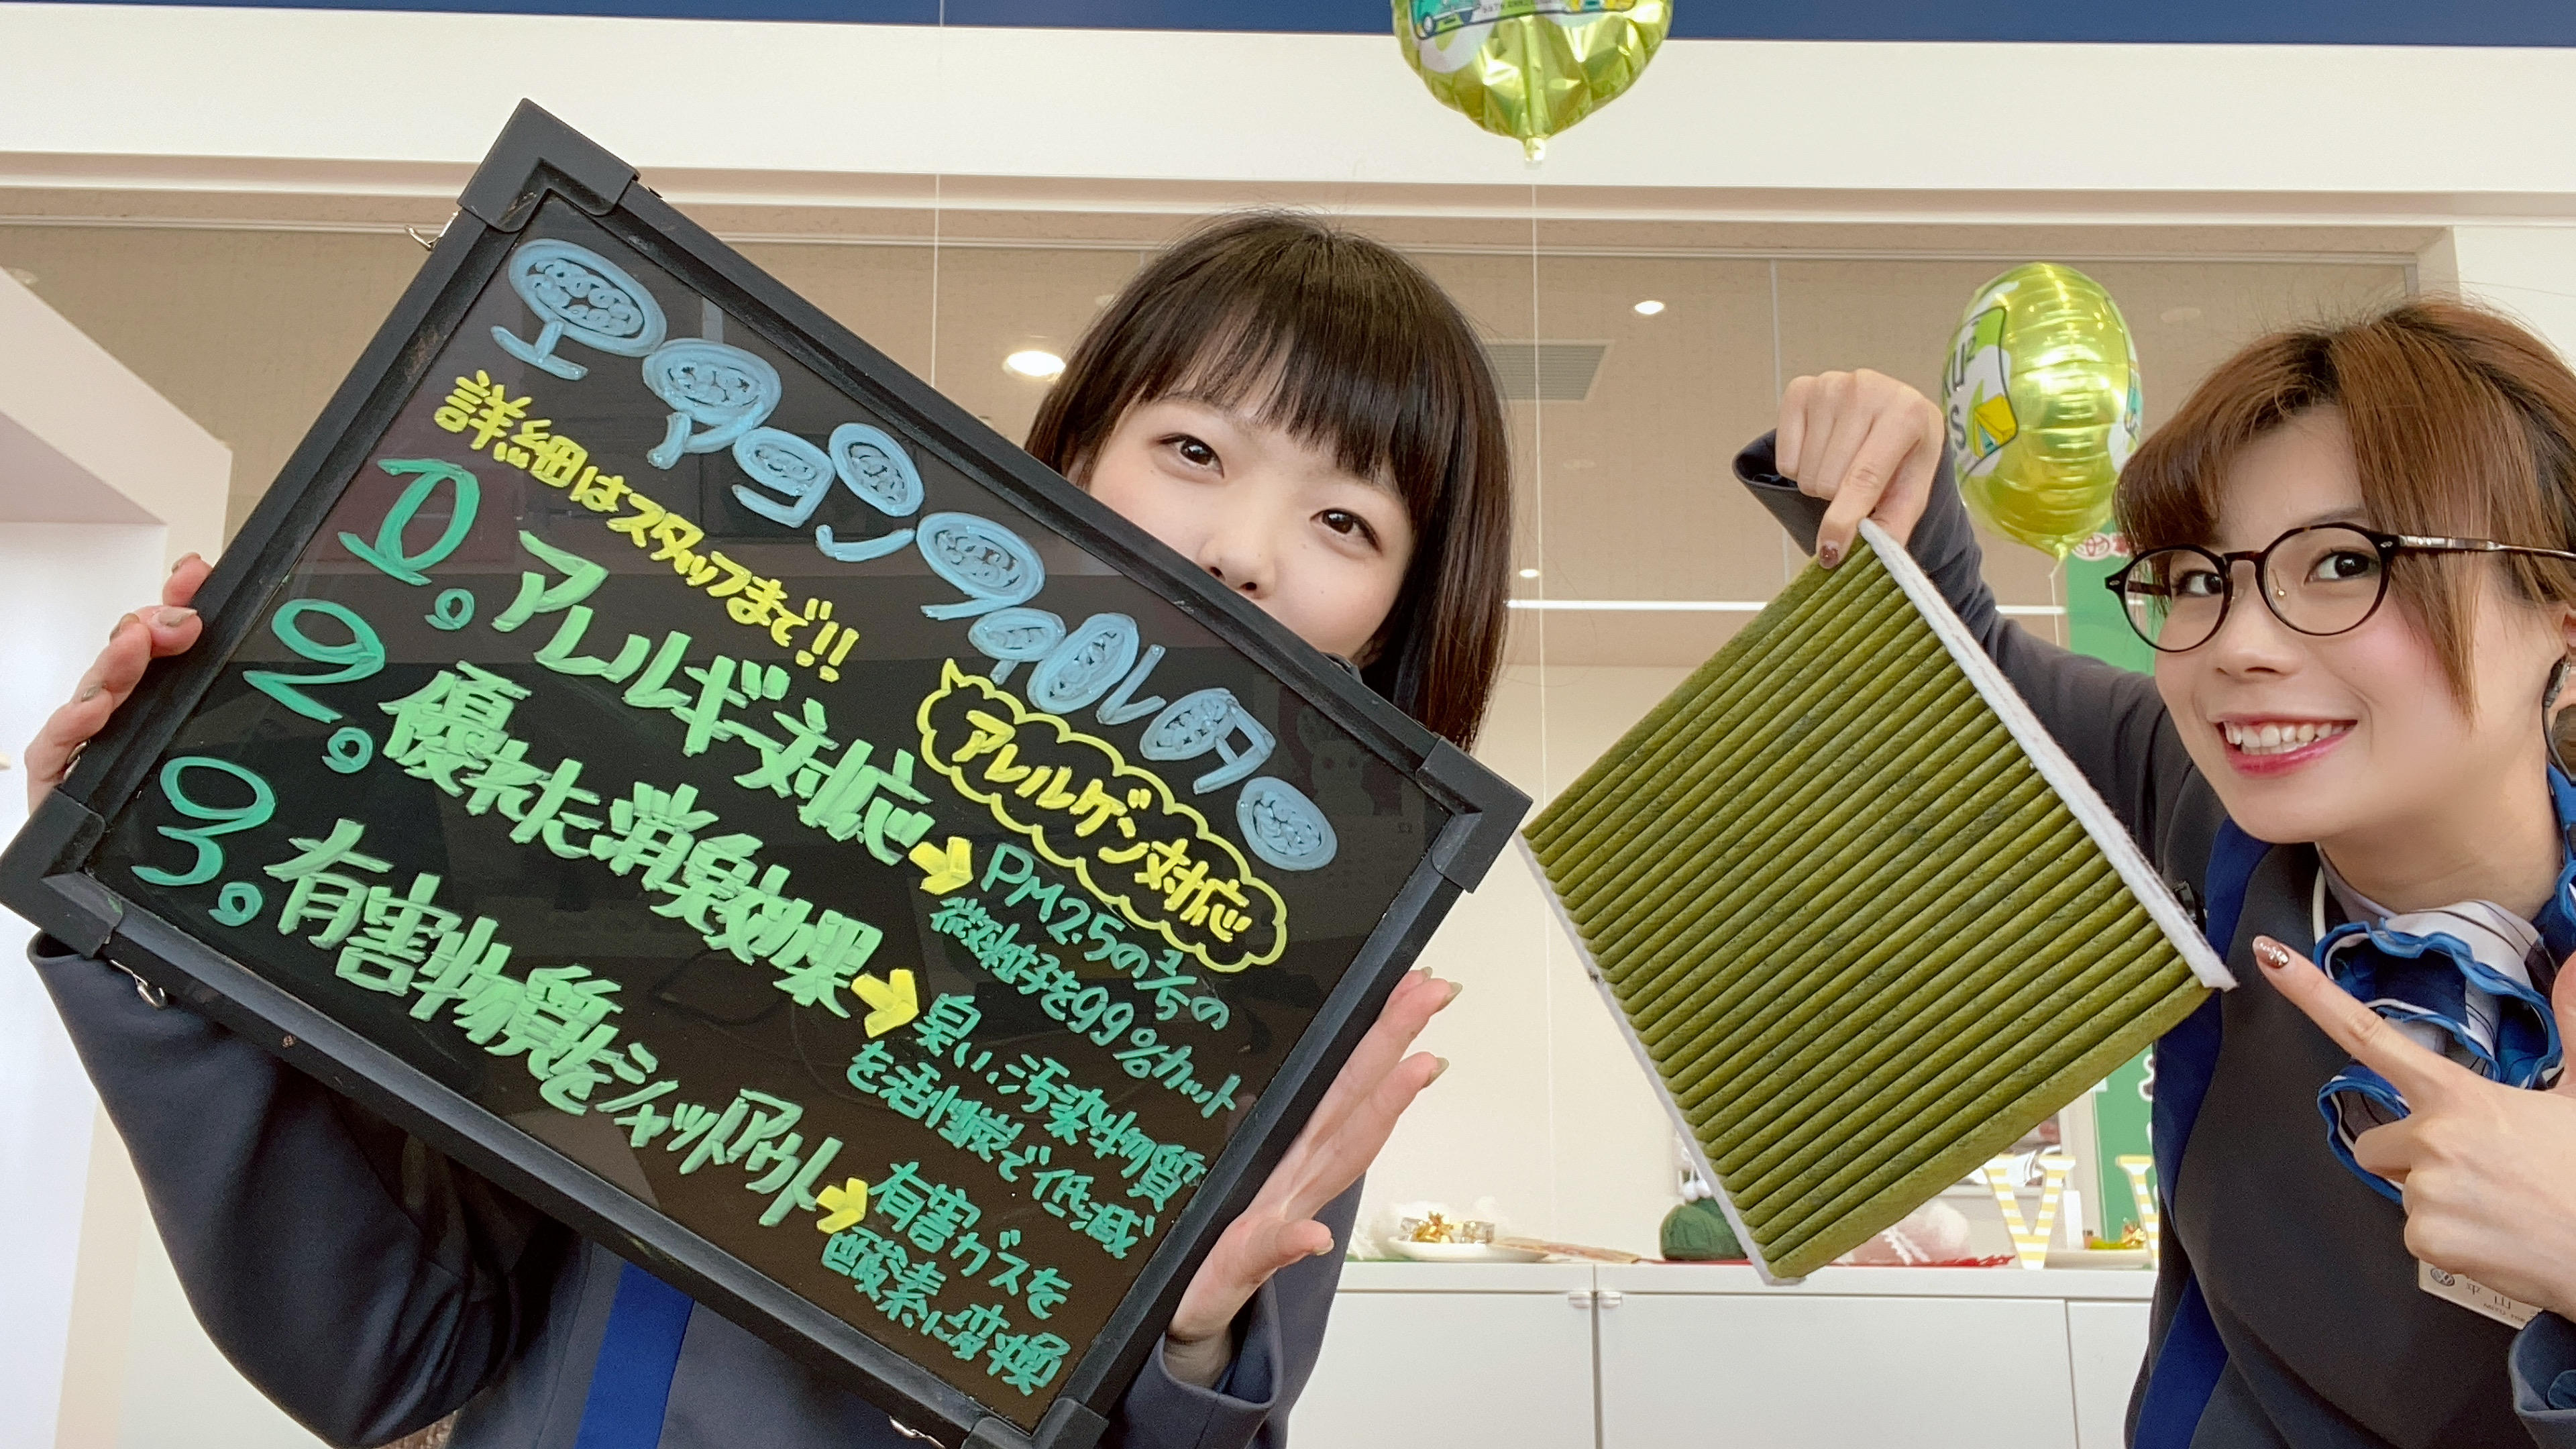 エアコンフィルター
詳細はスタッフまで!!
アレルゲン対応
1. アレルギー対応→PM2.5の1/5の
微粒子を99%カット
2. 優れた消臭効果→臭い、汚染物質
を活性炭で低減
3. 有害物質をシャットアウト→有害ガスを
酸素に変換